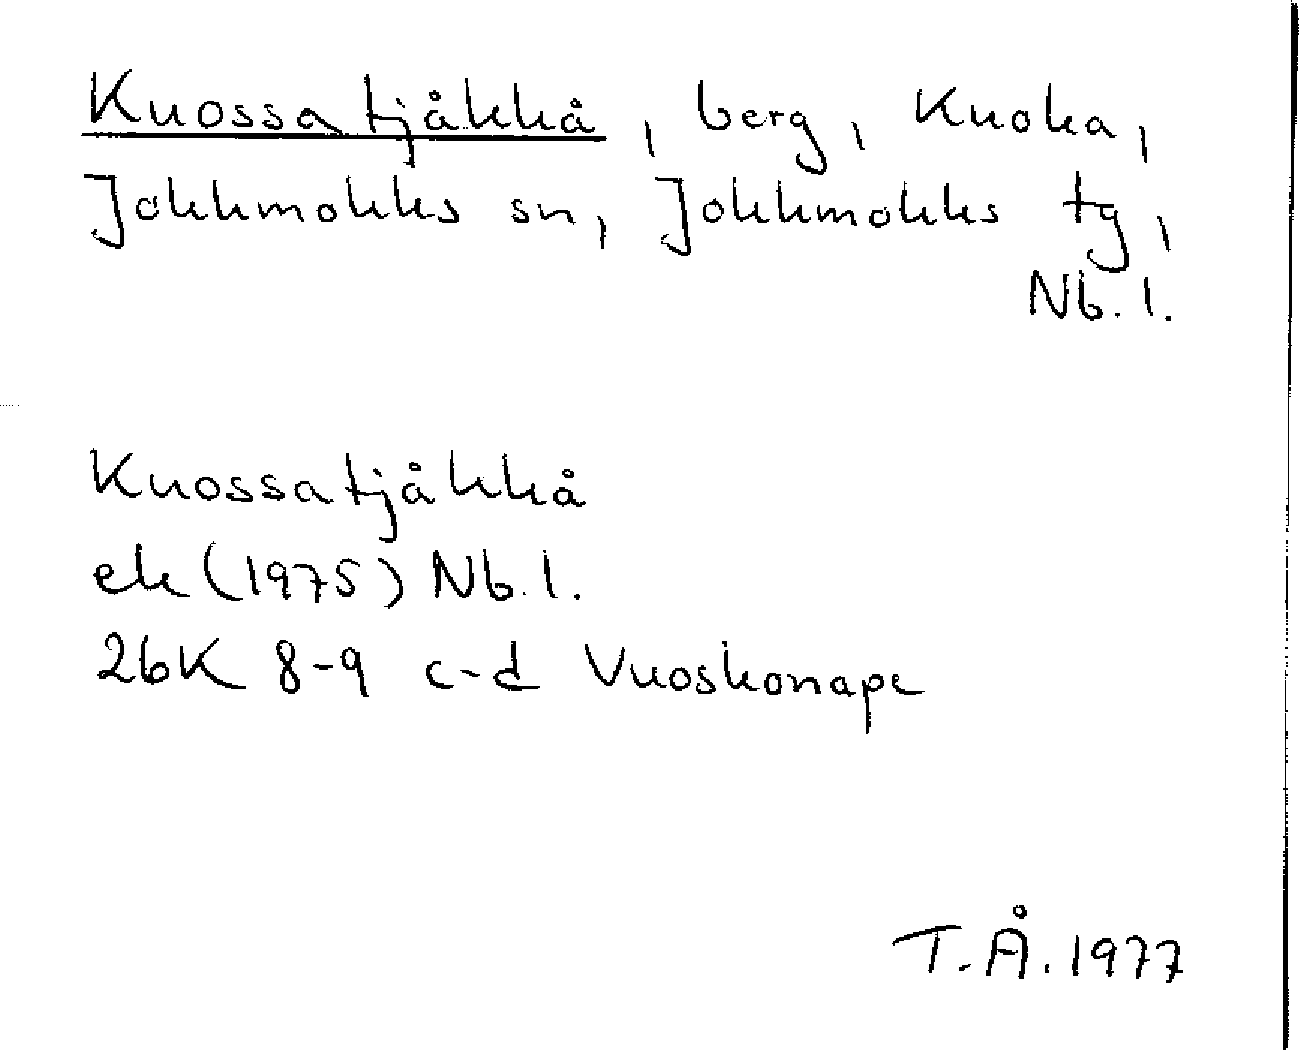 Kuossatjåkkå, berg, Kuoka,
Jokkmokks sn, Jokkmokks tg,
Nb. l.
Kuossatjåkkå
ek (1975) Nb. l.
26K 8-9 c-d Vuoskonape
T.Å. 1977